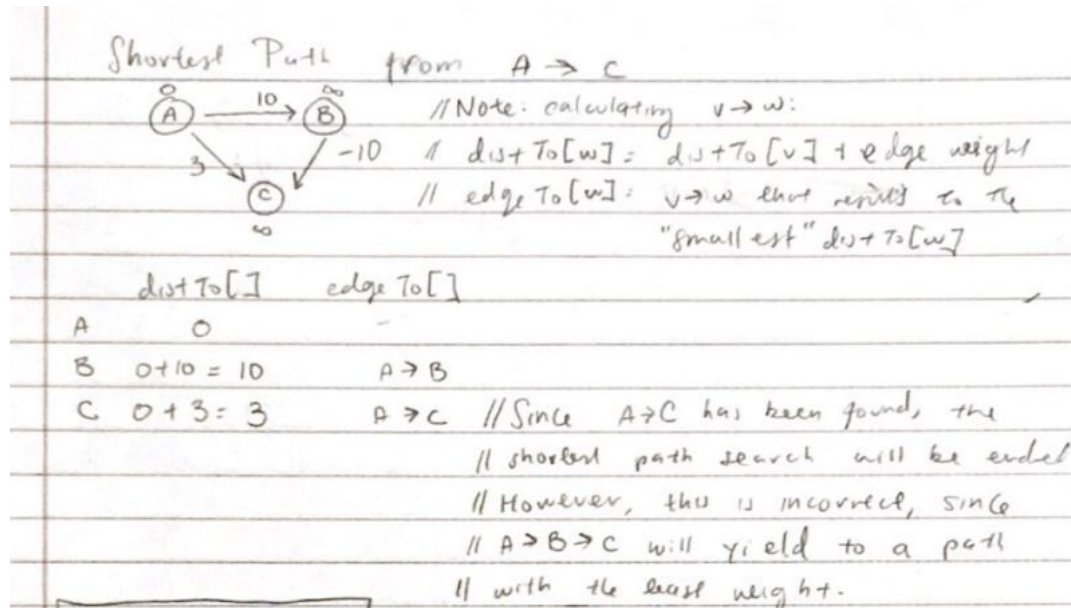 Shortest Path from A → C
0 10 ∞
A B //Note: calculating v → w:
3 -10 // distTo[w]: distTo[v] + edge weight
C // edgeTo[w]: v→w that results to the
∞ "smallest" distTo[w]
distTo[] edgeTo[]
A 0 -
B 0+10 = 10 A → B
C 0+3 = 3 A → C //Since A→C has been found, the
// shortest path search will be ended
// However, this is incorrect, since
// A→B→C will yield to a path
// with the least weight.